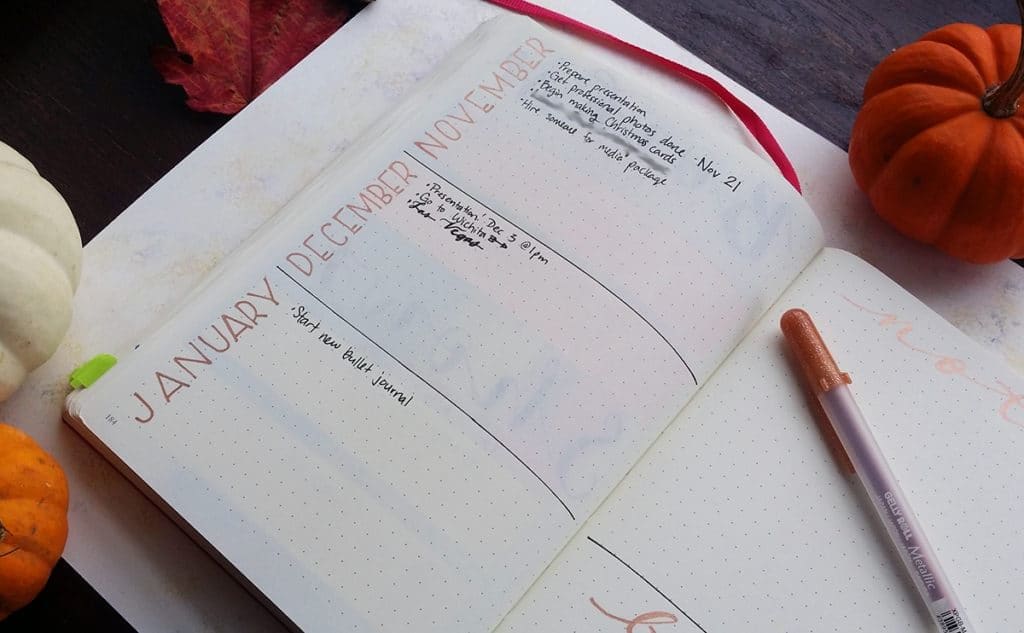 NOVEMBER
·Prepare presentation
·Get professional photos done - Nov 21
·Begin making Christmas cards
·Hire someone for media package
DECEMBER
·Presentation! Dec 5 @ 1pm
·Go to Wichita
·Las Vegas
JANUARY
·Start new bullet journal
184
not
GELLY ROLL Metallic